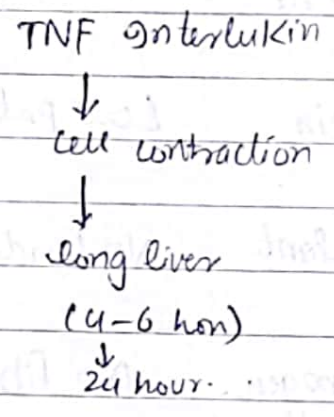 TNF Interlukin
↓
cell contraction
↓
long liver
(4-6 hon)
↓
24 hour.